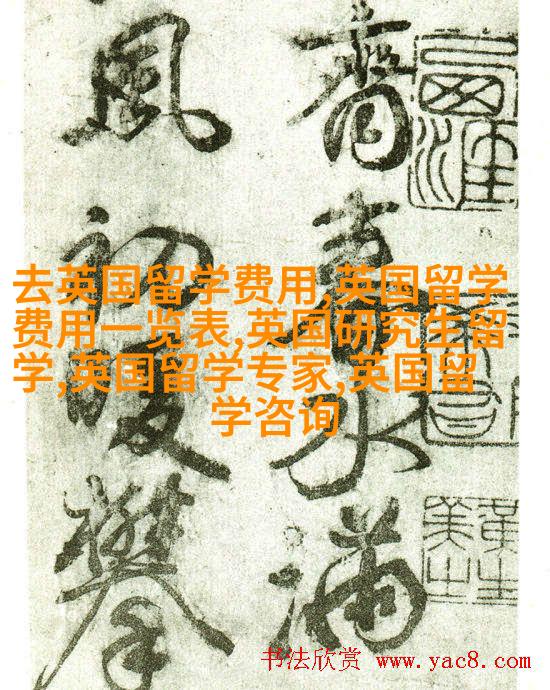 去英国留学费用,英国留学
费用一览表,英国研究生留
学,英国留学专家,英国留
学咨询
春水满
風初攀
书法欣赏 www.yac8.com